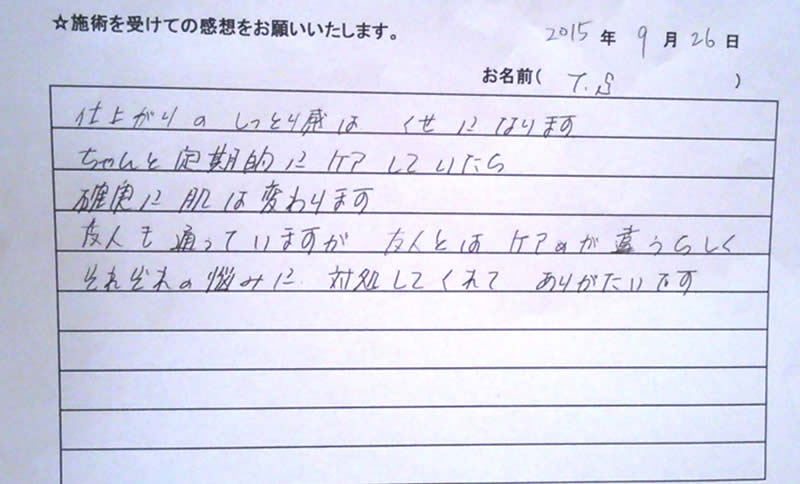 ☆施術を受けての感想をお願いいたします。
2015 年 9 月 26 日
お名前( T.S )
仕上がりの しっとり感は くせになります
ちゃんと定期的に ケアしていたら
確実に 肌は変わります
友人も通っていますが 友人とは ケアのが違うらしく
それぞれの悩みに 対処してくれて ありがたいです